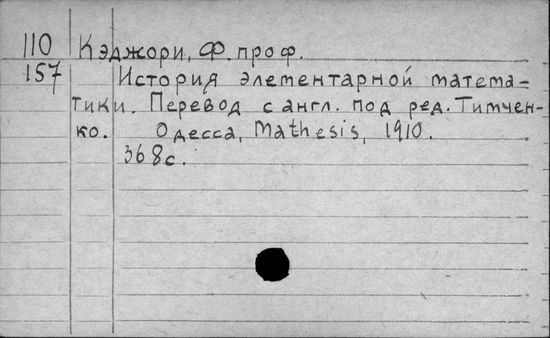 110 Кэджори, Ф. проф.
157 История элементарной матема-
тики. Перевод с англ. под ред. Тимчен-
ко. Одесса, Mathesis, 1910.
368 с.